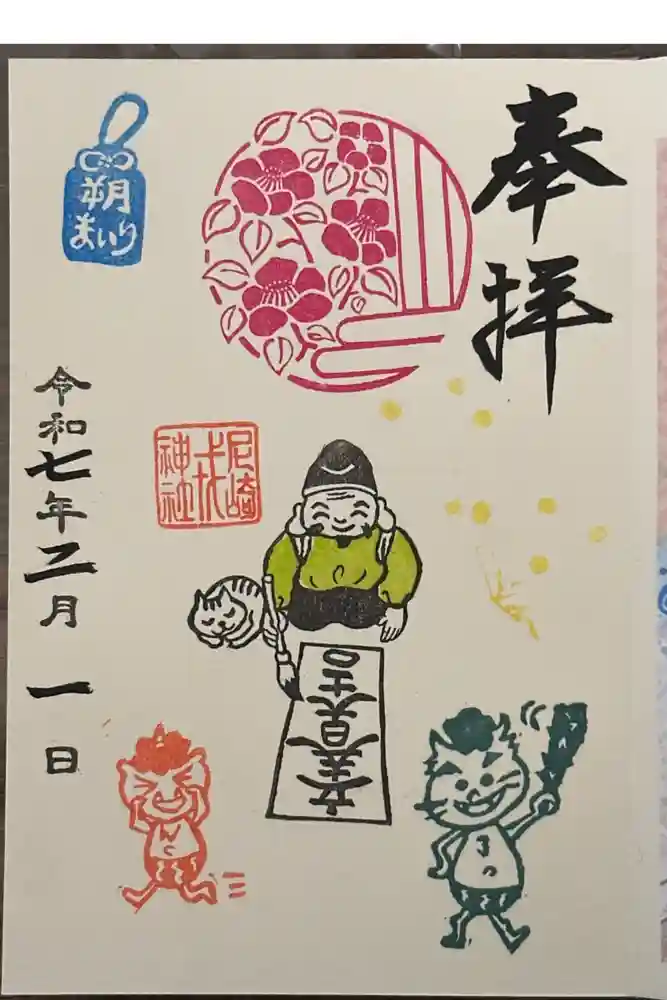 奉拝
朔
まいり
尼崎
戎
神社
立春大吉
令和七年二月一日